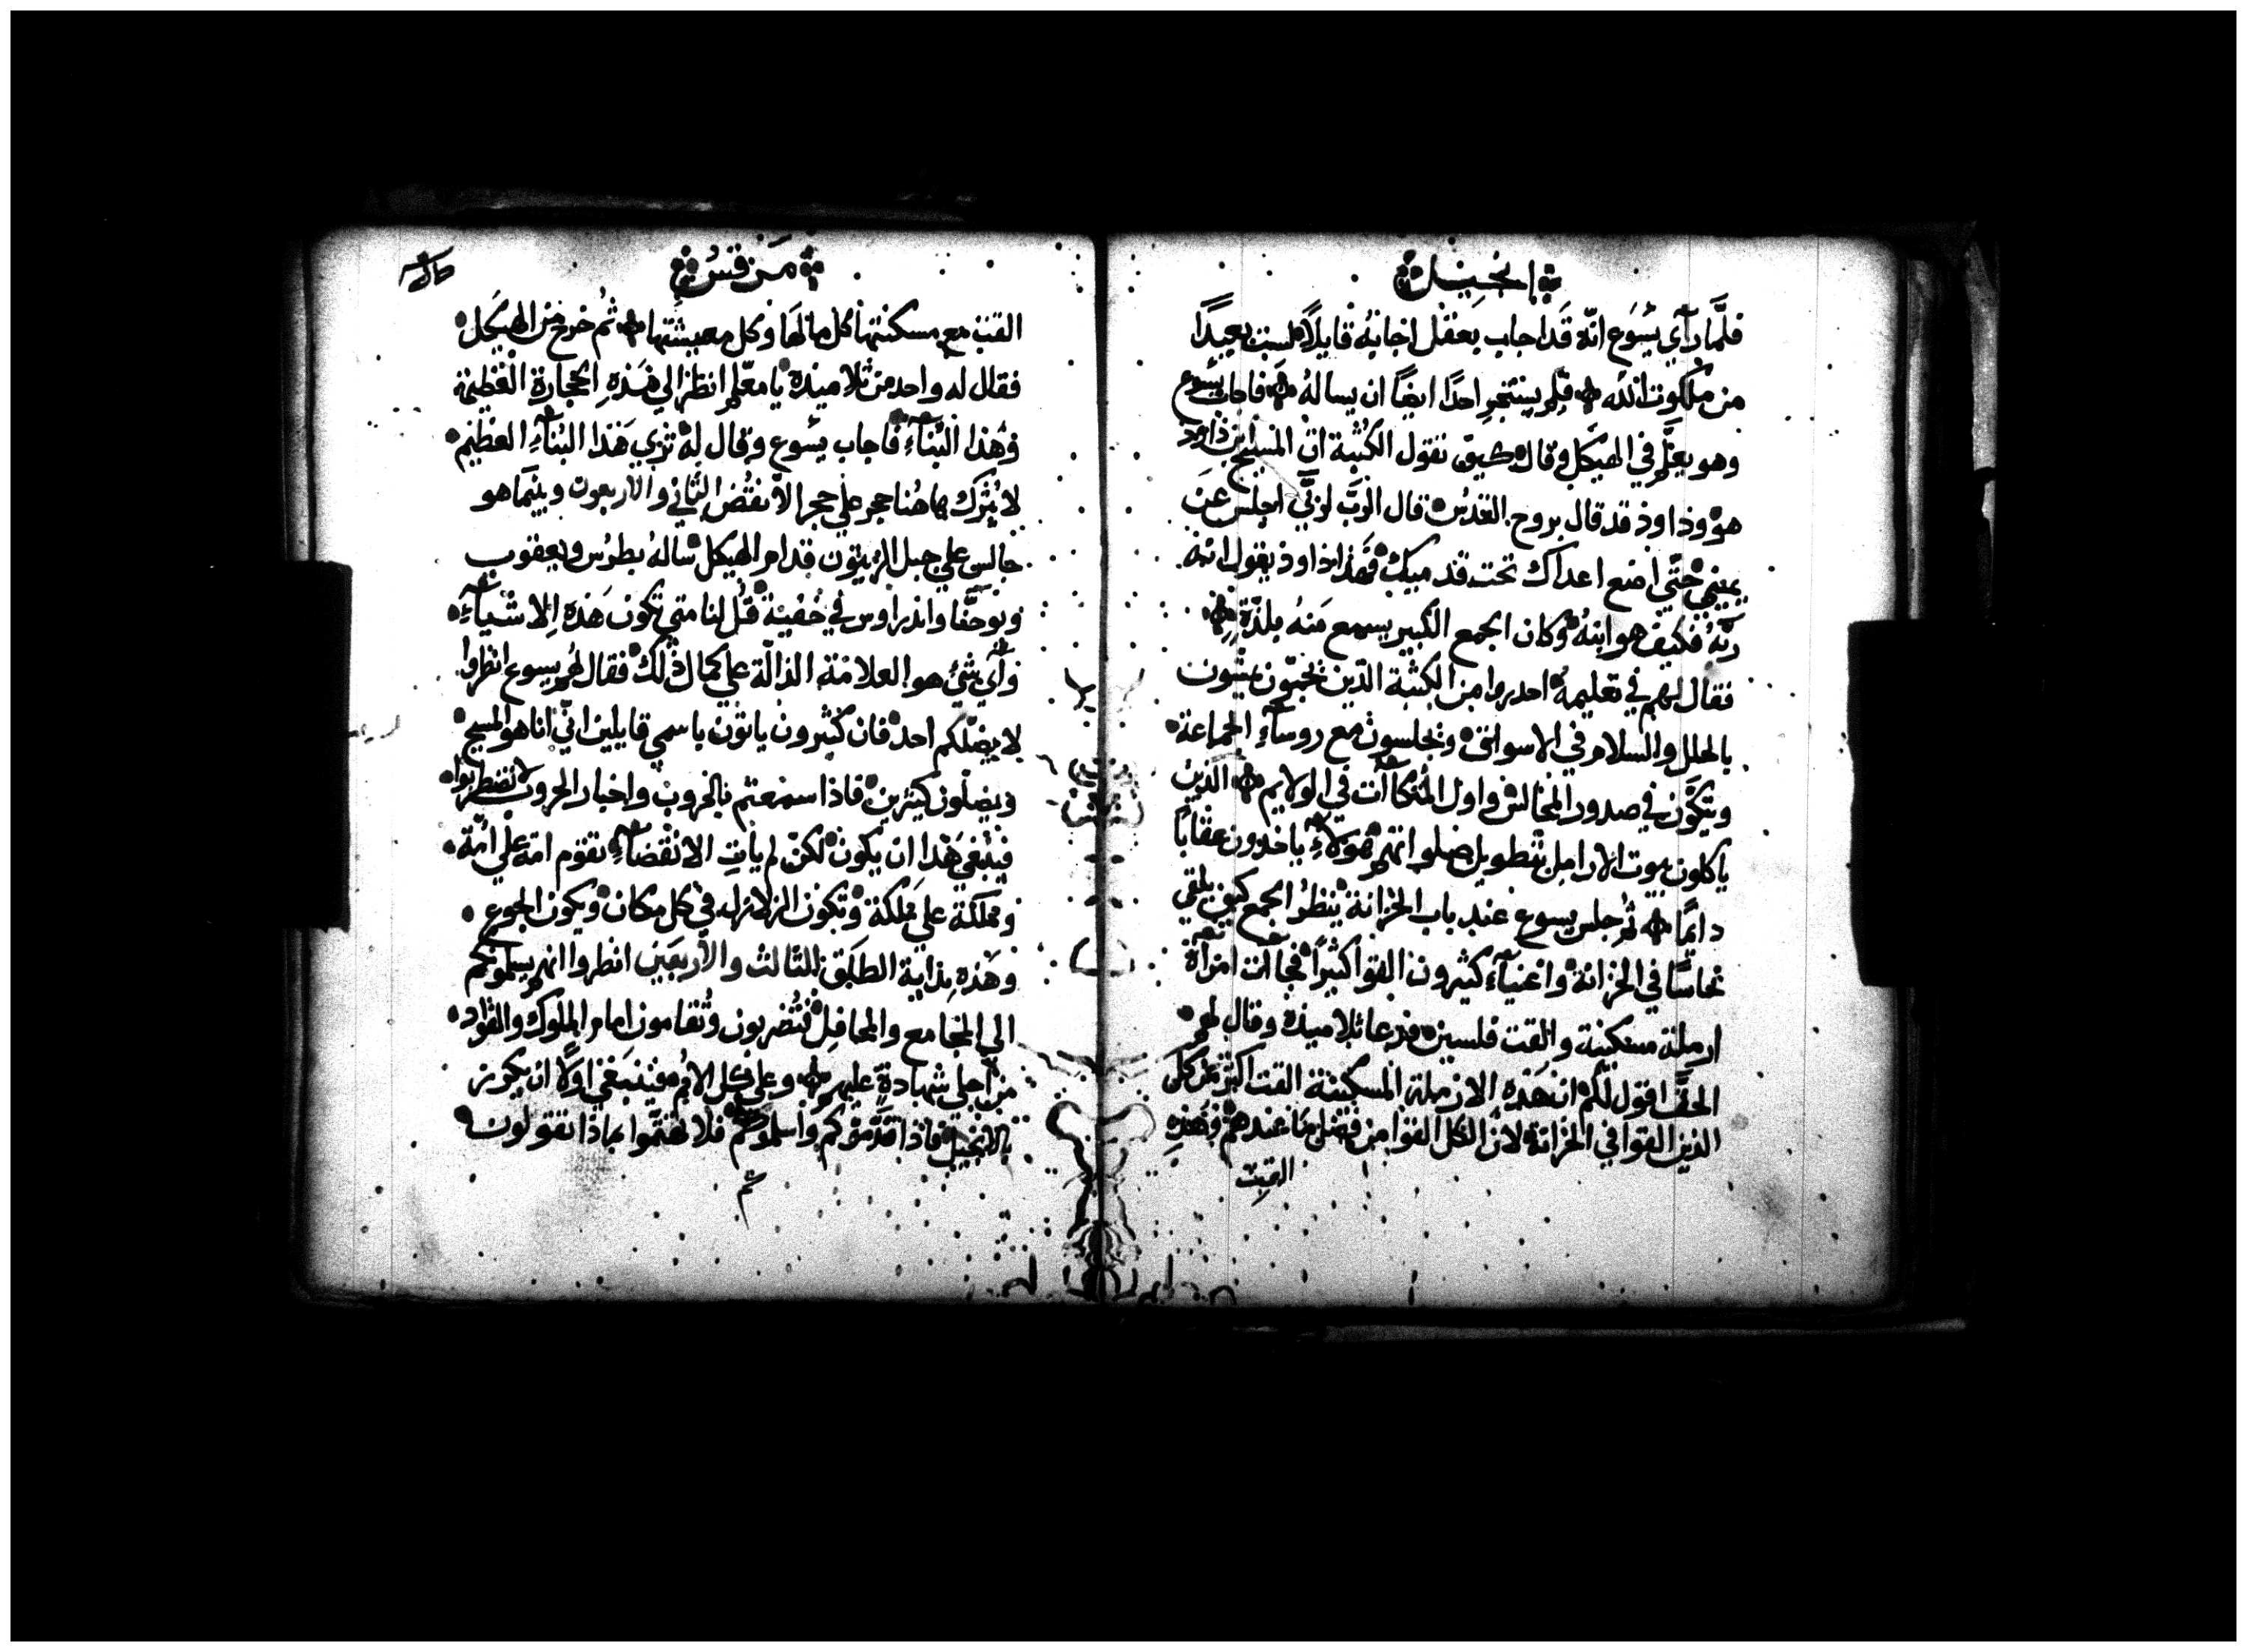 انجيل
فلمَّا رآي يسُوع انّه قَد اجاب بعقل اجابهُ قايلاً لست بعيدًا
من ملكوت الله فلم يستجرِ احدًا ايضًا ان يسالهُ فاجاب يسُوع
وهو يعلّم في الهيكل وقال كيق تقول الكتبة انّ المسيح بن داوود
هو وداوذ قد قال بروح القدس قال الربّ لربّي اجلس عن
يميني حتّي اضع اعداك تحت قدميك فهذا داوذ يقول انّه
ربّهُ فكيف هو ابنهُ وكان الجمع الكبير يسمع منهُ بلذّة
فقال لهم في تعليمه احدروا من الكتبة الذين يحبّون يمشون
بالحلل والسلام في الاسواق وتجلسون مع روسآءِ الجماعة
ويتكَّون في صدور المجالس واول المُتكاآت في الولايم الذين
ياكلون بيوت الارامل بتطويل صلواتهم هولآءِ ياخدون عقابًا
دايمًا ثم جلس يسوع عند باب الخزانة ينظرُ الجمع كيف يلقي
نحاسًا في الخزانة واغنيآء كثيرون القوا كثيرًا فجاآت امراة
ارملة مسكينة والقت فلسين فدعا تلاميذه وقال لهم
الحقّ اقول لكم ان هذه الارملة المسكينة القت اكثر من كل
الذين القوا في الخزانة لانّ الكل القوا من فضل ما عندهم وهذه
القت
مرقس
القت مع مسكنتها كل ما لها وكل معيشتها ثُم خرج من الهيكل
فقال له واحد من تلاميذه يا معلّم انظر الي هذهِ الحجارة العظيمة
وهذا البُنآءِ فاجاب يسُوع وقال له تري هذا البُنآءِ العظيم
لا يُترك هاهُنا حجر علي حجر الاّ نقض الثاني والاربعون وبينما هو
جالس علي جبل الزيتون قدام الهيكل سالهُ بطرُس ويعقوب
ويوحنَّا واندراوس في خُفية قُل لنا متي تكون هذه الاشيآءِ
وآي شئ هو العلامة الدالّة علي كمال ذلك فقال لهم يسوع انظروا
لا يضلّكم احد فان كثيرون ياتون باسمي قايلين انّي انا هو المسيح
ويضلّون كثيرين فاذا سمعتم بالحروب واخبار الحروب لا تضطربوا
فينبغي هذا ان يكون لكن لم ياتِ الانقضآءِ تقوم امة علي امّة
ومملكة علي مملكة وتكون الزلازل في كل مكان ويكون الجوع
وهذه بداية الطلَق الثالث والاربعين انظروا انهم يسلمونكم
الي المجامع والمحافل فتُضربون وتُقامون امام الملوك والقوّاد
من اجلي شهادةٍ عليهم وعلي كل الامُم فينبغي اولاً ان يكرز
بالانجيل فاذا قدّموكم واسلموكم فلا تهتمّوا بماذا تقولون